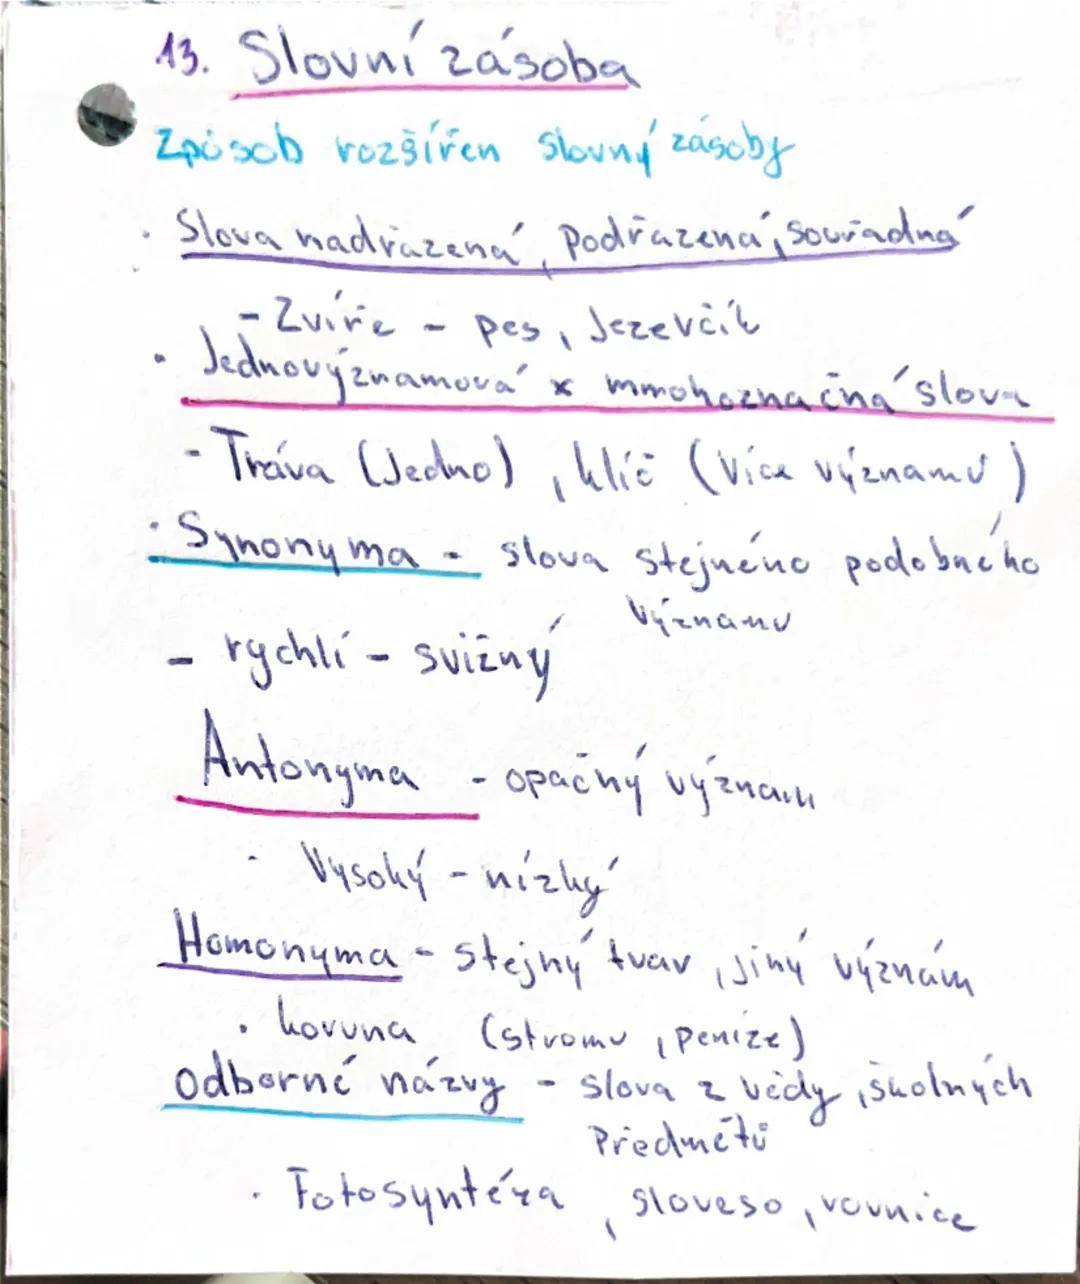 13. Slovní zásoba
Způsob rozšířen slovný zásoby
· Slova nadřazená, podřazená, souřadná
- Zvíře - pes, Jezevčík
· Jednovýznamová x mmohoznačná slova
- Tráva (Jedno), klíč (Více významů)
· Synonyma - slova stejného podobného
významu
- rychlí - svižný
Antonyma - opačný význam
· Vysoký - nízký
Homonyma - stejný tvar, jiný význám
· koruna (stromu, peníze)
Odborné názvy - slova z vědy, školných
Předmětů
· Fotosyntéza, sloveso, rovnice